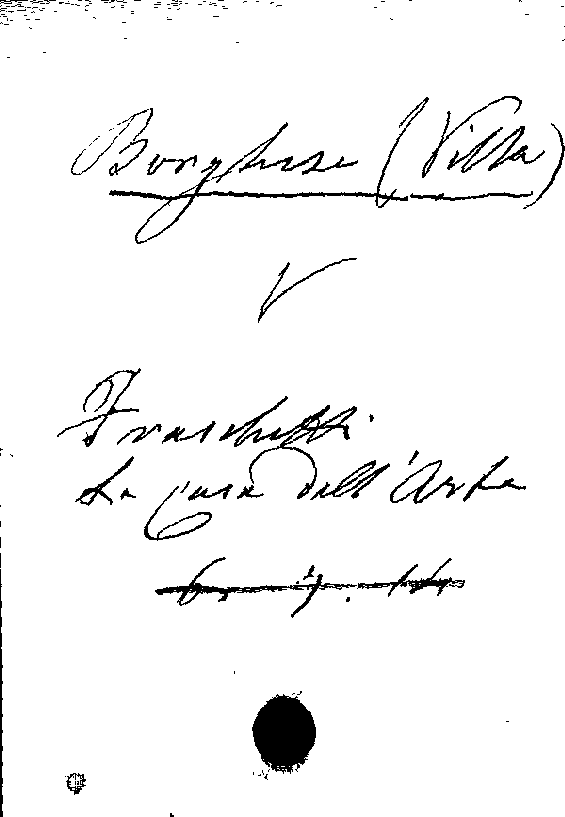 Borghese (Villa)
V
Fraschetti.
La casa dell'Arte
6. 9. 14